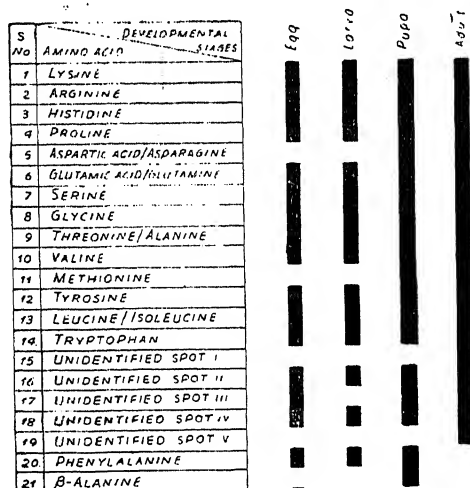 S No AMINO ACID DEVELOPMENTAL STAGES Egg Larva Pupa Adult
1 LYSINE
2 ARGININE
3 HISTIDINE
4 PROLINE
5 ASPARTIC ACID/ASPARAGINE
6 GLUTAMIC ACID/GLUTAMINE
7 SERINE
8 GLYCINE
9 THREONINE/ALANINE
10 VALINE
11 METHIONINE
12 TYROSINE
13 LEUCINE/ISOLEUCINE
14. TRYPTOPHAN
15 UNIDENTIFIED SPOT I
16 UNIDENTIFIED SPOT II
17 UNIDENTIFIED SPOT III
18 UNIDENTIFIED SPOT IV
19 UNIDENTIFIED SPOT V
20. PHENYLALANINE
21 β-ALANINE